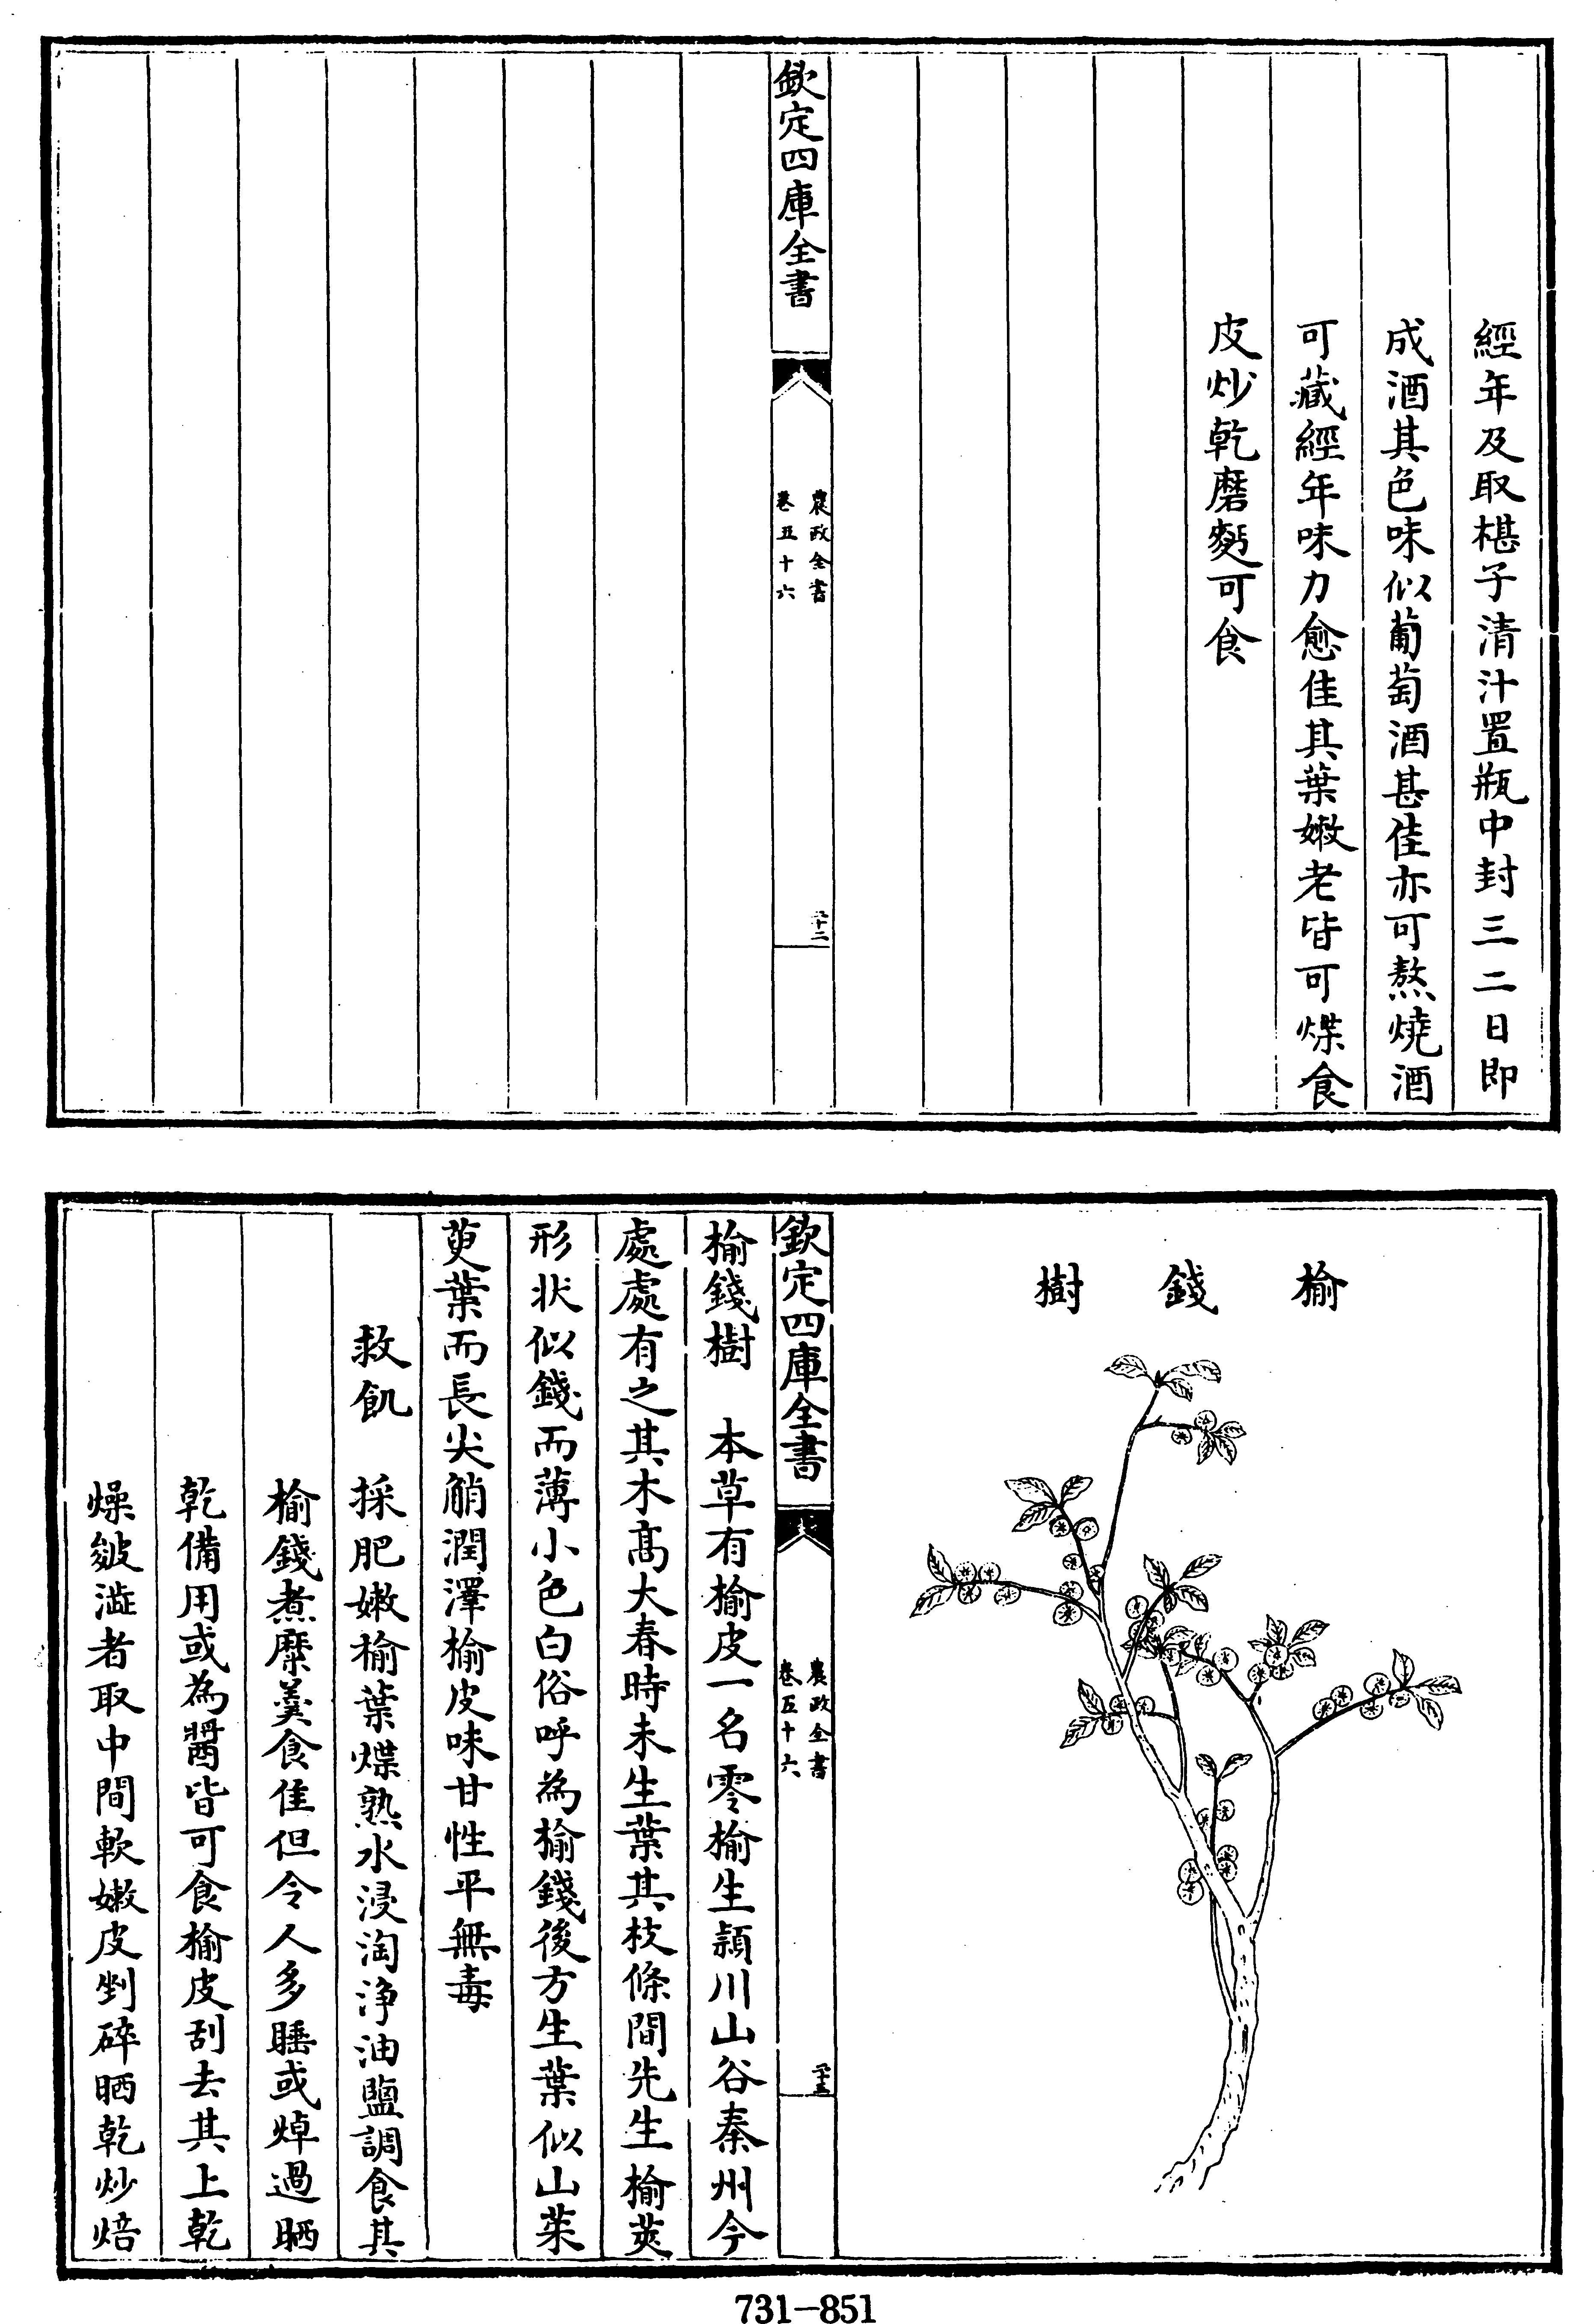 經年及取椹子清汁置瓶中封三二日即
成酒其色味似葡萄酒甚佳亦可熬燒酒
可藏經年味力愈佳其葉嫩老皆可煠食
皮炒乾磨麪可食
欽定四庫全書
農政全書
卷五十六
二十二
榆錢樹
欽定四庫全書
農政全書
卷五十六
二十三
榆錢樹　本草有榆皮一名零榆生頴川山谷秦州今
處處有之其木髙大春時未生葉其枝條間先生榆莢
形狀似錢而薄小色白俗呼為榆錢後方生葉似山茱
萸葉而長尖艄潤澤榆皮味甘性平無毒
救飢　採肥嫩榆葉煠熟水浸淘淨油鹽調食其
榆錢煮糜羮食佳但令人多睡或焯過晒
乾備用或為醬皆可食榆皮刮去其上乾
燥皴澁者取中間軟嫩皮剉碎晒乾炒焙
731-851